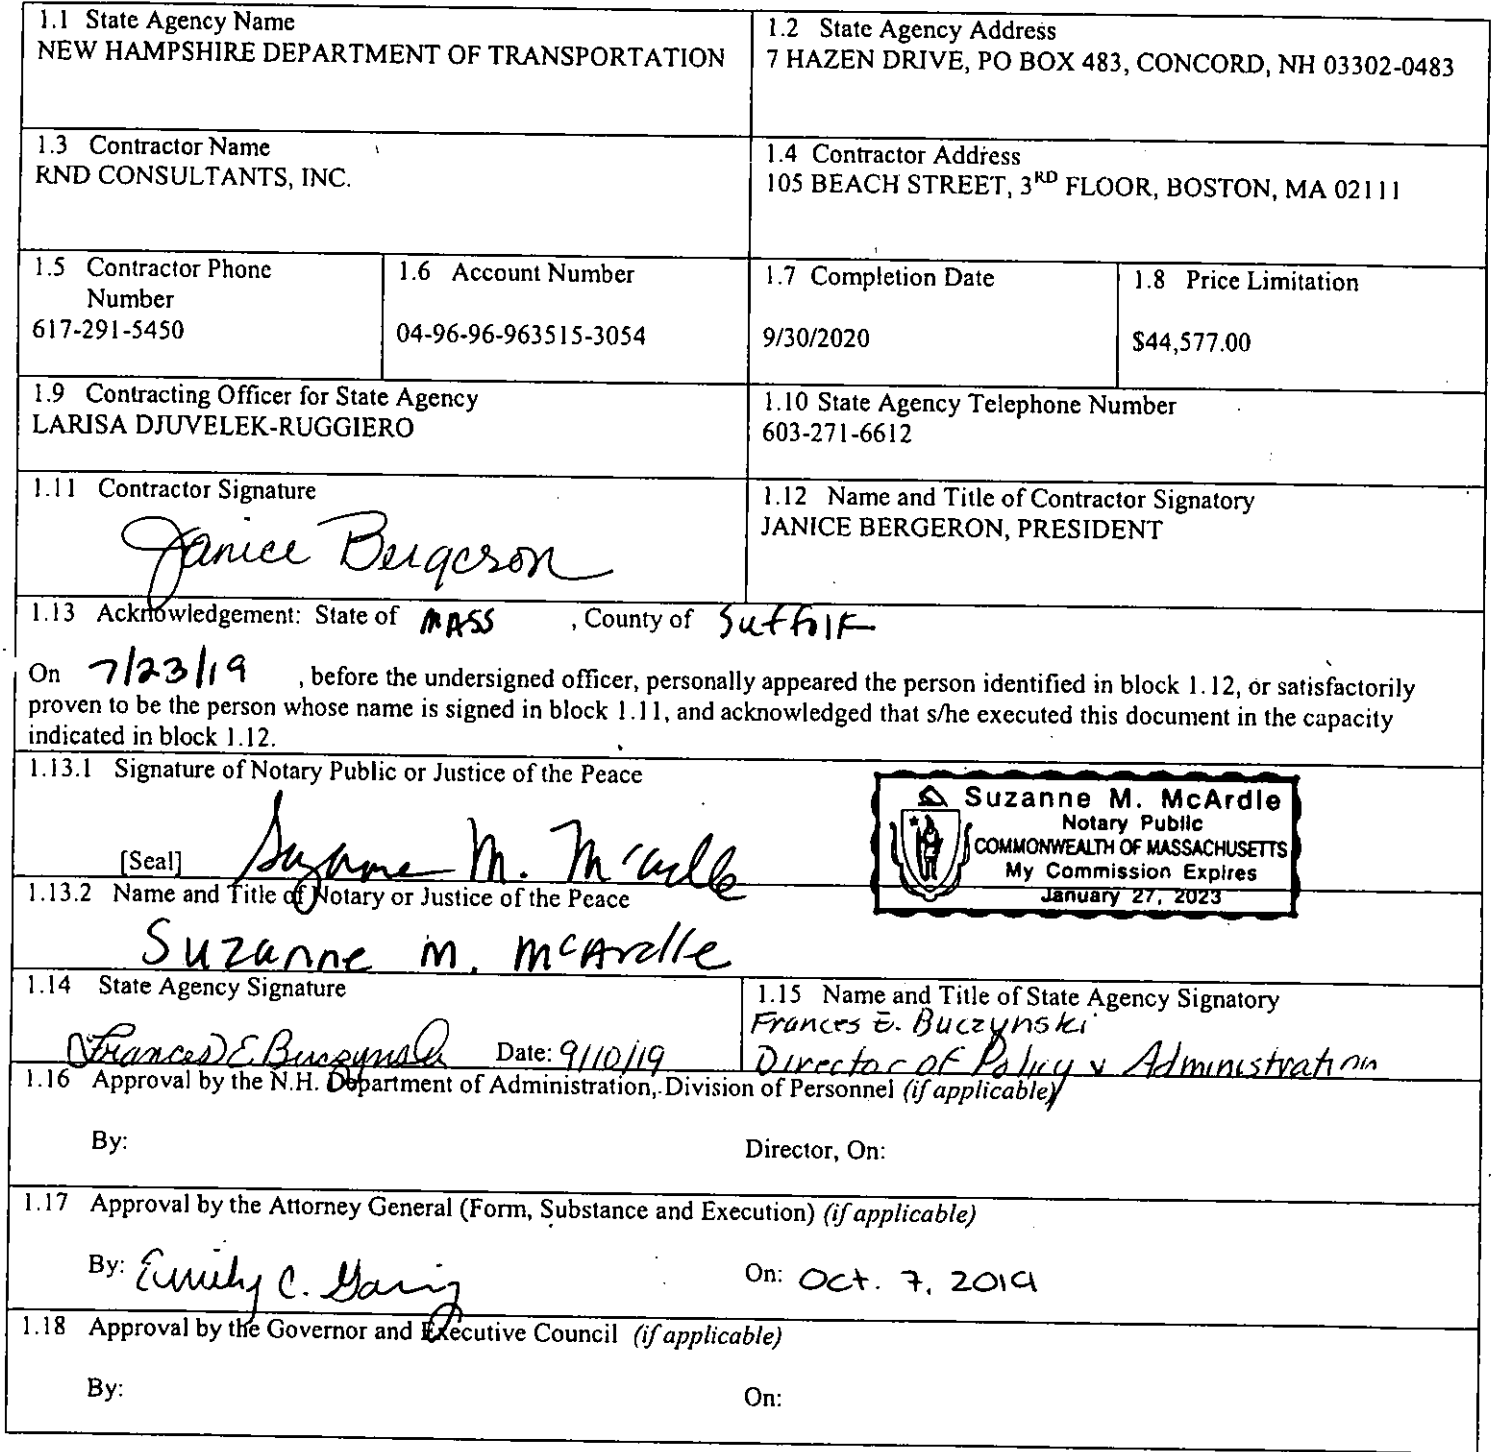 1.1 State Agency Name
NEW HAMPSHIRE DEPARTMENT OF TRANSPORTATION
1.2 State Agency Address
7 HAZEN DRIVE, PO BOX 483, CONCORD, NH 03302-0483
1.3 Contractor Name
RND CONSULTANTS, INC.
1.4 Contractor Address
105 BEACH STREET, 3RD FLOOR, BOSTON, MA 02111
1.5 Contractor Phone
Number
617-291-5450
1.6 Account Number
04-96-96-963515-3054
1.7 Completion Date
9/30/2020
1.8 Price Limitation
$44,577.00
1.9 Contracting Officer for State Agency
LARISA DJUVELEK-RUGGIERO
1.10 State Agency Telephone Number
603-271-6612
1.11 Contractor Signature
Janice Bergeron
1.12 Name and Title of Contractor Signatory
JANICE BERGERON, PRESIDENT
1.13 Acknowledgement: State of MASS , County of Suffolk
On 7/23/19 , before the undersigned officer, personally appeared the person identified in block 1.12, or satisfactorily
proven to be the person whose name is signed in block 1.11, and acknowledged that s/he executed this document in the capacity
indicated in block 1.12.
1.13.1 Signature of Notary Public or Justice of the Peace
[Seal] Suzanne M. McArdle
Suzanne M. McArdle
Notary Public
COMMONWEALTH OF MASSACHUSETTS
My Commission Expires
January 27, 2023
1.13.2 Name and Title of Notary or Justice of the Peace
Suzanne M. McArdle
1.14 State Agency Signature
Frances E Buczynski Date: 9/10/19
1.15 Name and Title of State Agency Signatory
Frances E. Buczynski
Director of Policy & Administration
1.16 Approval by the N.H. Department of Administration, Division of Personnel (if applicable)
By:
Director, On:
1.17 Approval by the Attorney General (Form, Substance and Execution) (if applicable)
By: Emily C.
On: Oct. 7, 2019
1.18 Approval by the Governor and Executive Council (if applicable)
By:
On: